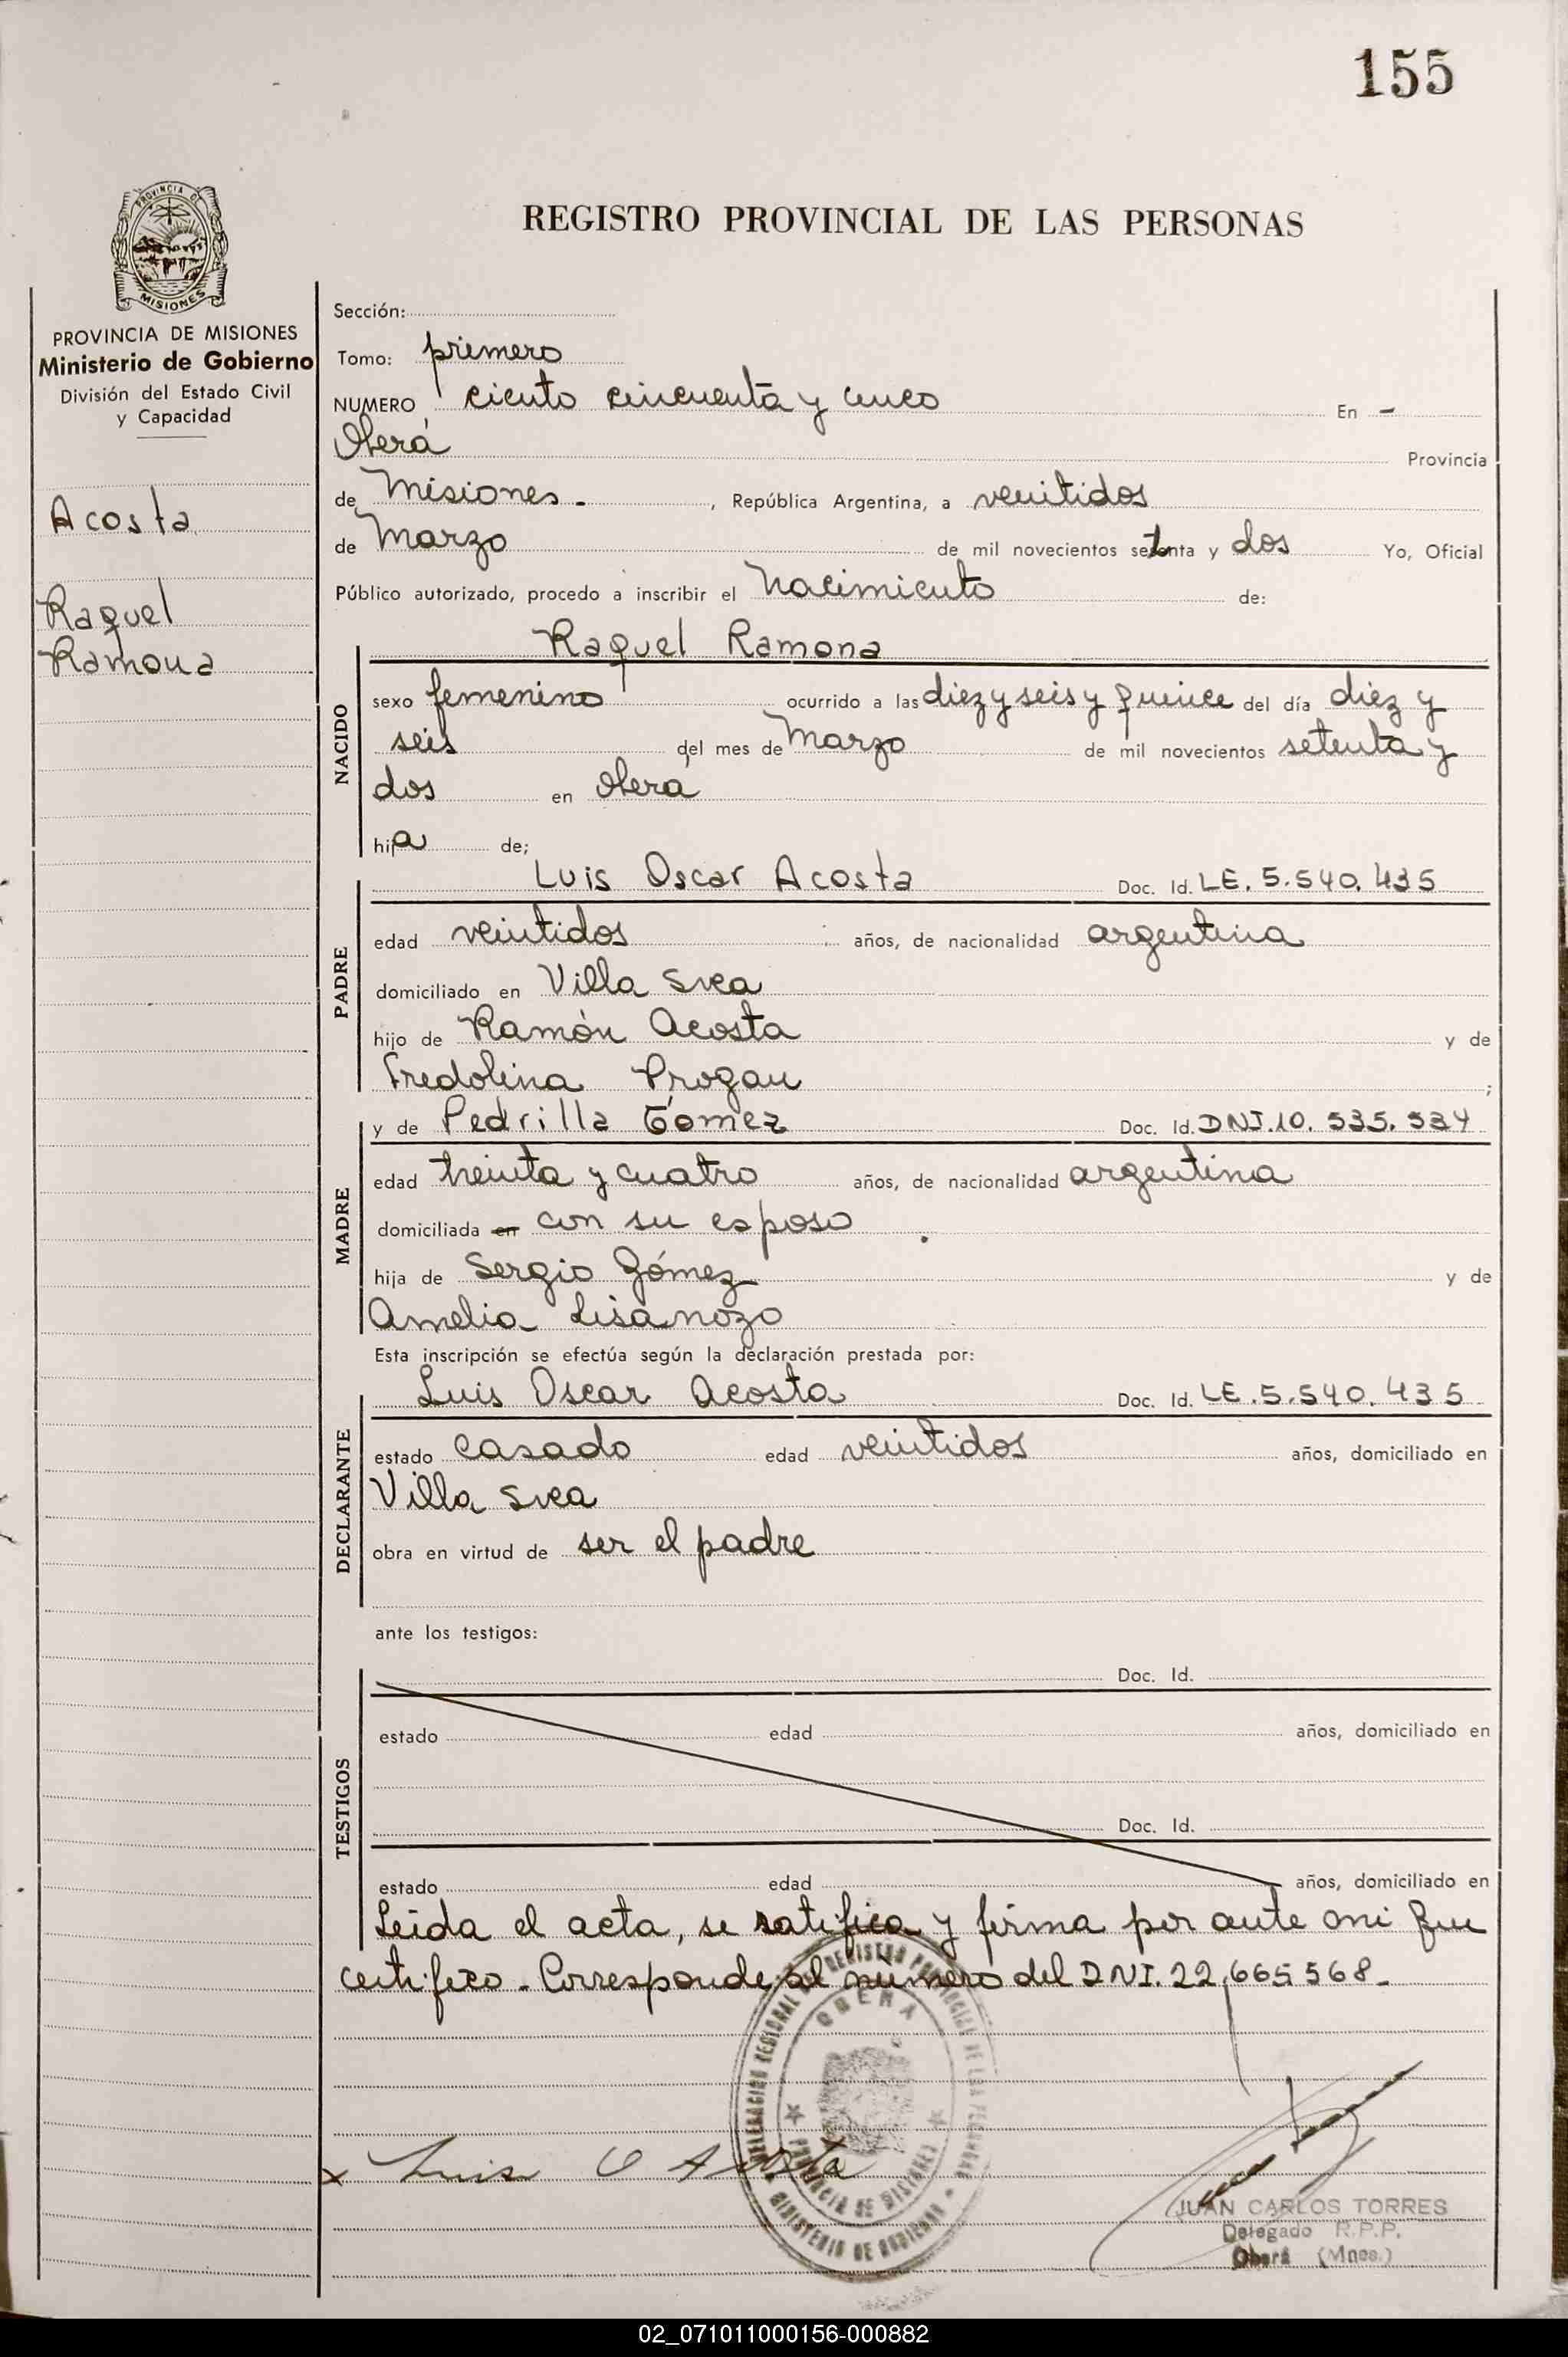 155
REGISTRO PROVINCIAL DE LAS PERSONAS
PROVINCIA DE MISIONES
Ministerio de Gobierno
División del Estado Civil
y Capacidad
Acosta
Raquel
Ramona
Sección:
Tomo: primero
NUMERO ciento cincuenta y cinco En -
Oberá Provincia
de Misiones.- , República Argentina, a veintidos
de Marzo de mil novecientos setenta y dos Yo, Oficial
Público autorizado, procedo a inscribir el Nacimiento de:
Raquel Ramona
NACIDO
sexo femenino ocurrido a las diez y seis y quince del día diez y
seis del mes de Marzo de mil novecientos setenta y
dos en Oberá
hija de;
PADRE
Luis Oscar Acosta Doc. Id. LE. 5.540.435
edad veintidos años, de nacionalidad argentina
domiciliado en Villa Svea
hijo de Ramón Acosta y de
Fredolina Progau ;
MADRE
y de Pedrilla Gómez Doc. Id. DNI.10.535.534
edad treinta y cuatro años, de nacionalidad argentina
domiciliada en con su esposo
hija de Sergio Gómez y de
Amelia Lisanozo
Esta inscripción se efectúa según la declaración prestada por:
DECLARANTE
Luis Oscar Acosta Doc. Id. LE.5.540.435
estado casado edad veintidos años, domiciliado en
Villa Svea
obra en virtud de ser el padre
ante los testigos:
TESTIGOS
Doc. Id.
estado edad años, domiciliado en
Doc. Id.
estado edad años, domiciliado en
Leida el acta, se ratifica y firma por ante mi que
certifico.- Corresponde al número del DNI. 22,665568.-
OBERA
PROVINCIA DE MISIONES
MINISTERIO DE GOBIERNO
x Luis O Acosta
JUAN CARLOS TORRES
Delegado R.P.P.
Oberá (Mnes.)
02_071011000156-000882